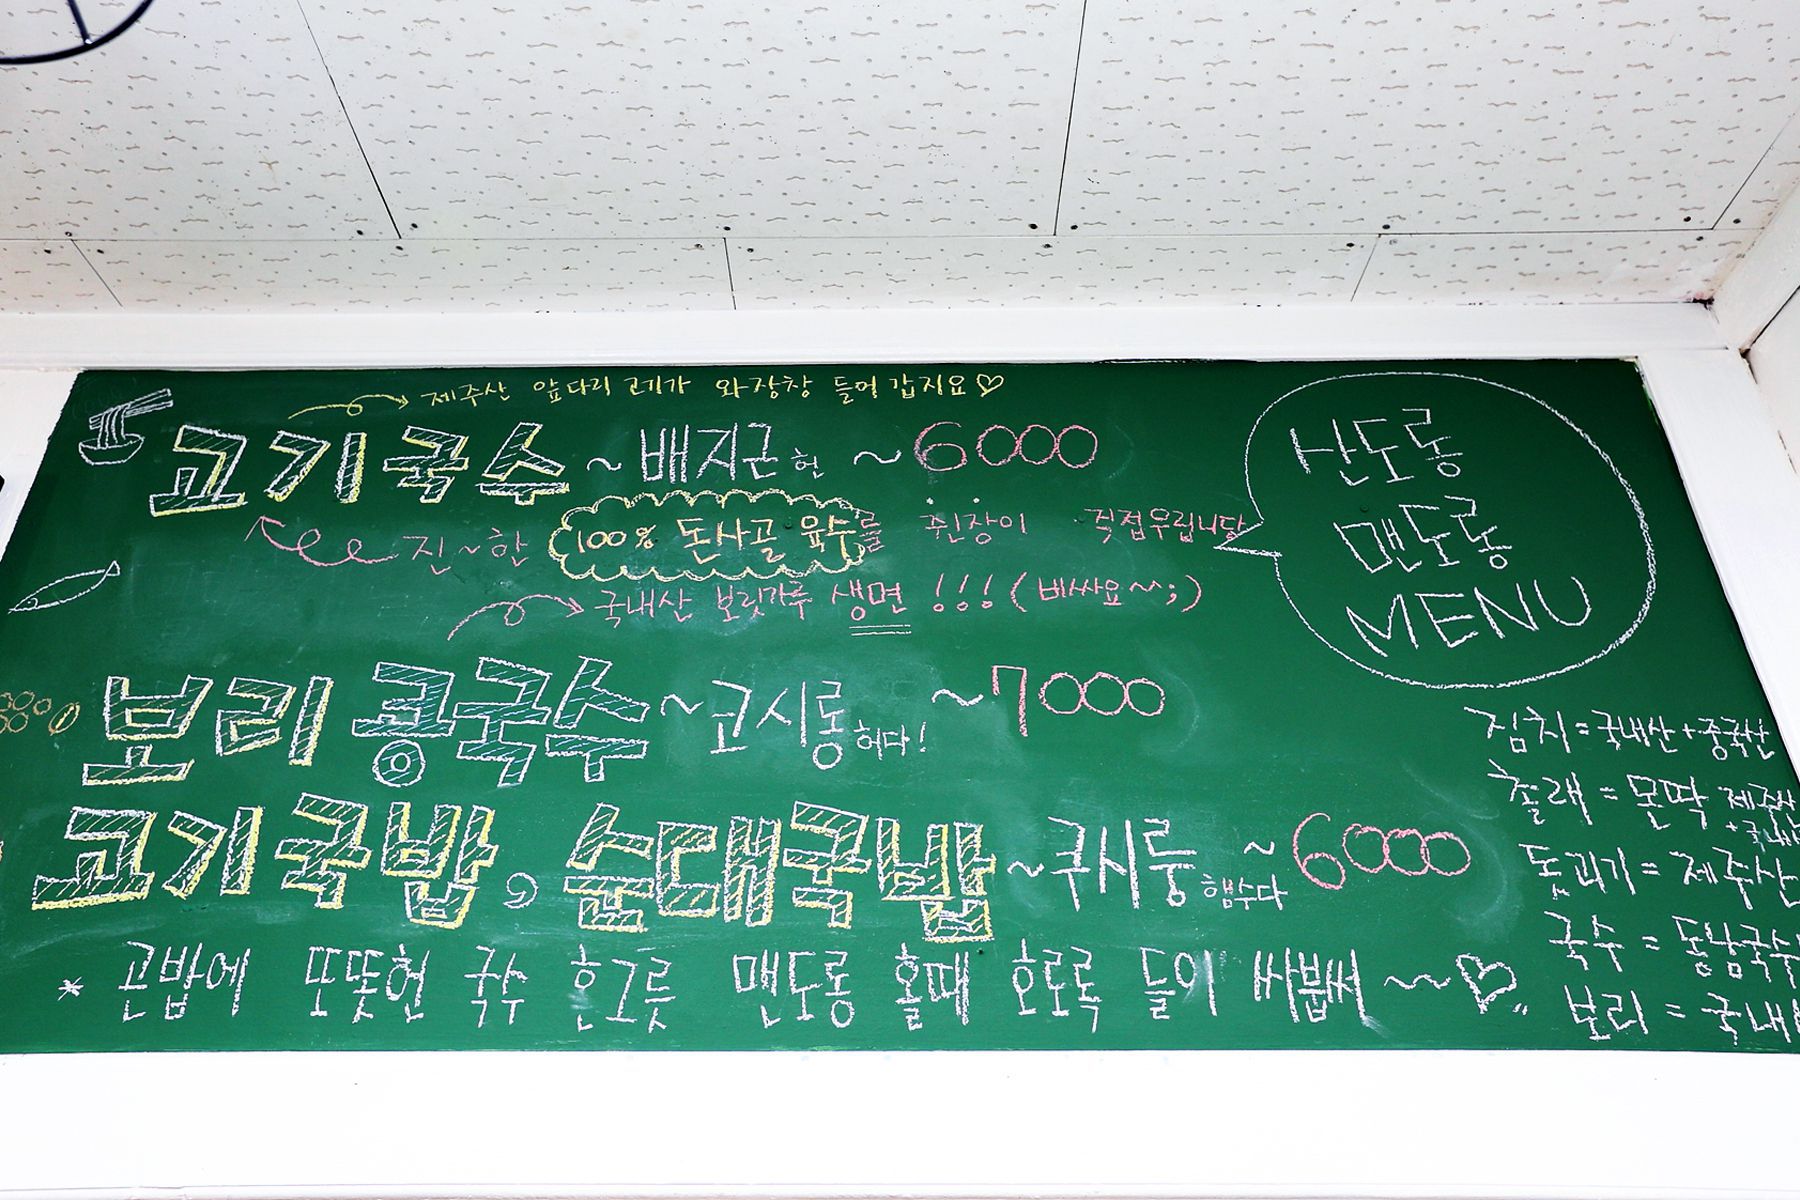 제주산 앞다리 고기가 와장창 들어 갑지요♡
고기국수 ~ 배지근 헌 ~ 6000
진~한 100% 돈사골 육수를 쥔장이 직접우립니당
국내산 보릿가루 생면 !!! (비싸요~^;)
산도롱
맨도롱
MENU
보리 콩국수 ~ 고시롱 허다! ~ 7000
고기국밥, 순대국밥 ~ 구시룽 햄수다 ~ 6000
* 곤밥에 또똣헌 국수 흔그릇 맨도롱 홀때 호로록 들이 싸붑써 ~~♡
짐치 = 국내산 + 중국산
촐래 = 몬딱 제주산
돗괴기 = 제주산
국수 = 동남국수
보리 = 국내